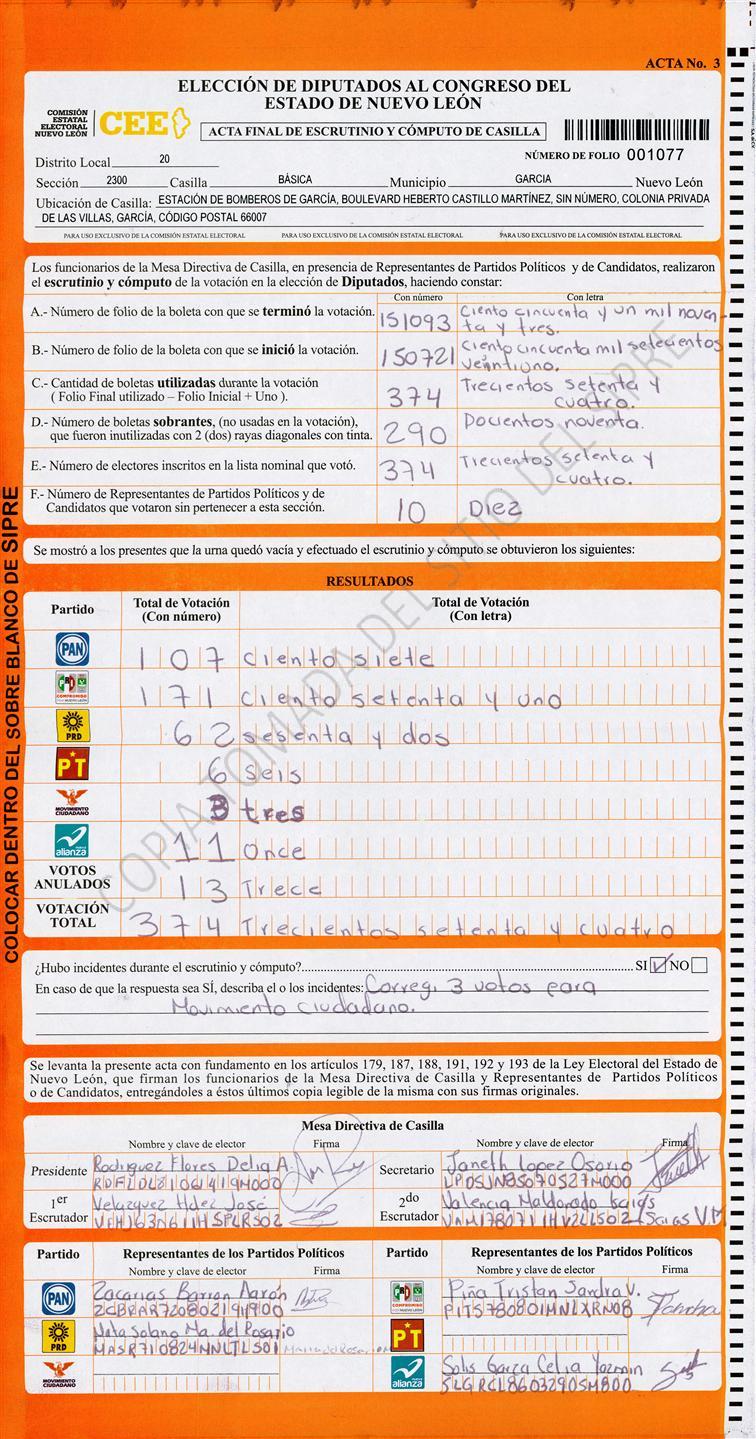 ACTA No. 3
ELECCIÓN DE DIPUTADOS AL CONGRESO DEL
ESTADO DE NUEVO LEÓN
COMISIÓN
ESTATAL
ELECTORAL
NUEVO LEÓN
CEE
ACTA FINAL DE ESCRUTINIO Y CÓMPUTO DE CASILLA
Distrito Local 20
NÚMERO DE FOLIO 001077
Sección 2300 Casilla BÁSICA Municipio GARCIA Nuevo León
Ubicación de Casilla: ESTACIÓN DE BOMBEROS DE GARCÍA, BOULEVARD HEBERTO CASTILLO MARTÍNEZ, SIN NÚMERO, COLONIA PRIVADA
DE LAS VILLAS, GARCÍA, CÓDIGO POSTAL 66007
PARA USO EXCLUSIVO DE LA COMISIÓN ESTATAL ELECTORAL PARA USO EXCLUSIVO DE LA COMISIÓN ESTATAL ELECTORAL PARA USO EXCLUSIVO DE LA COMISIÓN ESTATAL ELECTORAL
Los funcionarios de la Mesa Directiva de Casilla, en presencia de Representantes de Partidos Políticos y de Candidatos, realizaron
el escrutinio y cómputo de la votación en la elección de Diputados, haciendo constar:
Con número Con letra
A.- Número de folio de la boleta con que se terminó la votación. 151093 Ciento cincuenta y un mil noven-
ta y tres.
B.- Número de folio de la boleta con que se inició la votación. 150721 Ciento cincuenta mil setecientos
veintiuno.
C.- Cantidad de boletas utilizadas durante la votación
( Folio Final utilizado – Folio Inicial + Uno ). 374 Trecientos setenta y
cuatro.
D.- Número de boletas sobrantes, (no usadas en la votación),
que fueron inutilizadas con 2 (dos) rayas diagonales con tinta. 290 Docientos noventa.
E.- Número de electores inscritos en la lista nominal que votó. 374 Trecientos setenta y
cuatro.
F.- Número de Representantes de Partidos Políticos y de
Candidatos que votaron sin pertenecer a esta sección. 10 Diez
Se mostró a los presentes que la urna quedó vacía y efectuado el escrutinio y cómputo se obtuvieron los siguientes:
RESULTADOS
Partido Total de Votación (Con número) Total de Votación (Con letra)
PAN 107 ciento siete
PRI COMPROMISO 171 Ciento setenta y uno
PRD 62 sesenta y dos
PT 6 seis
MOVIMIENTO CIUDADANO 3 tres
nueva alianza 11 Once
VOTOS ANULADOS 13 Trece
VOTACIÓN TOTAL 374 Trecientos setenta y cuatro
¿Hubo incidentes durante el escrutinio y cómputo? SI ✓ NO
En caso de que la respuesta sea SÍ, describa el o los incidentes: Corregi 3 votos para
Movimiento ciudadano.
Se levanta la presente acta con fundamento en los artículos 179, 187, 188, 191, 192 y 193 de la Ley Electoral del Estado de
Nuevo León, que firman los funcionarios de la Mesa Directiva de Casilla y Representantes de Partidos Políticos
o de Candidatos, entregándoles a éstos últimos copia legible de la misma con sus firmas originales.
Mesa Directiva de Casilla
Nombre y clave de elector Firma Nombre y clave de elector Firma
Presidente Rodriguez Flores Delia A.
Secretario Janeth Lopez Osorio
LPOSJN85070527M000
1er Escrutador Velazquez Hdez José
2do Escrutador Valencia Maldonado Isaias
Isaias V.M
Partido Representantes de los Partidos Políticos Partido Representantes de los Partidos Políticos
Nombre y clave de elector Firma Nombre y clave de elector Firma
PAN Zacarias Barron Aarón
ZCBRAR72080219H900
PRI COMPROMISO Piña Tristan Sandra V.
PRD Mata Solano Ma. del Rosario
PT
MOVIMIENTO CIUDADANO
nueva alianza Solis Garza Celia Yazmin
SLGRCL86032905M800
COLOCAR DENTRO DEL SOBRE BLANCO DE SIPRE
COPIA TOMADA DEL SITIO DEL SIPRE